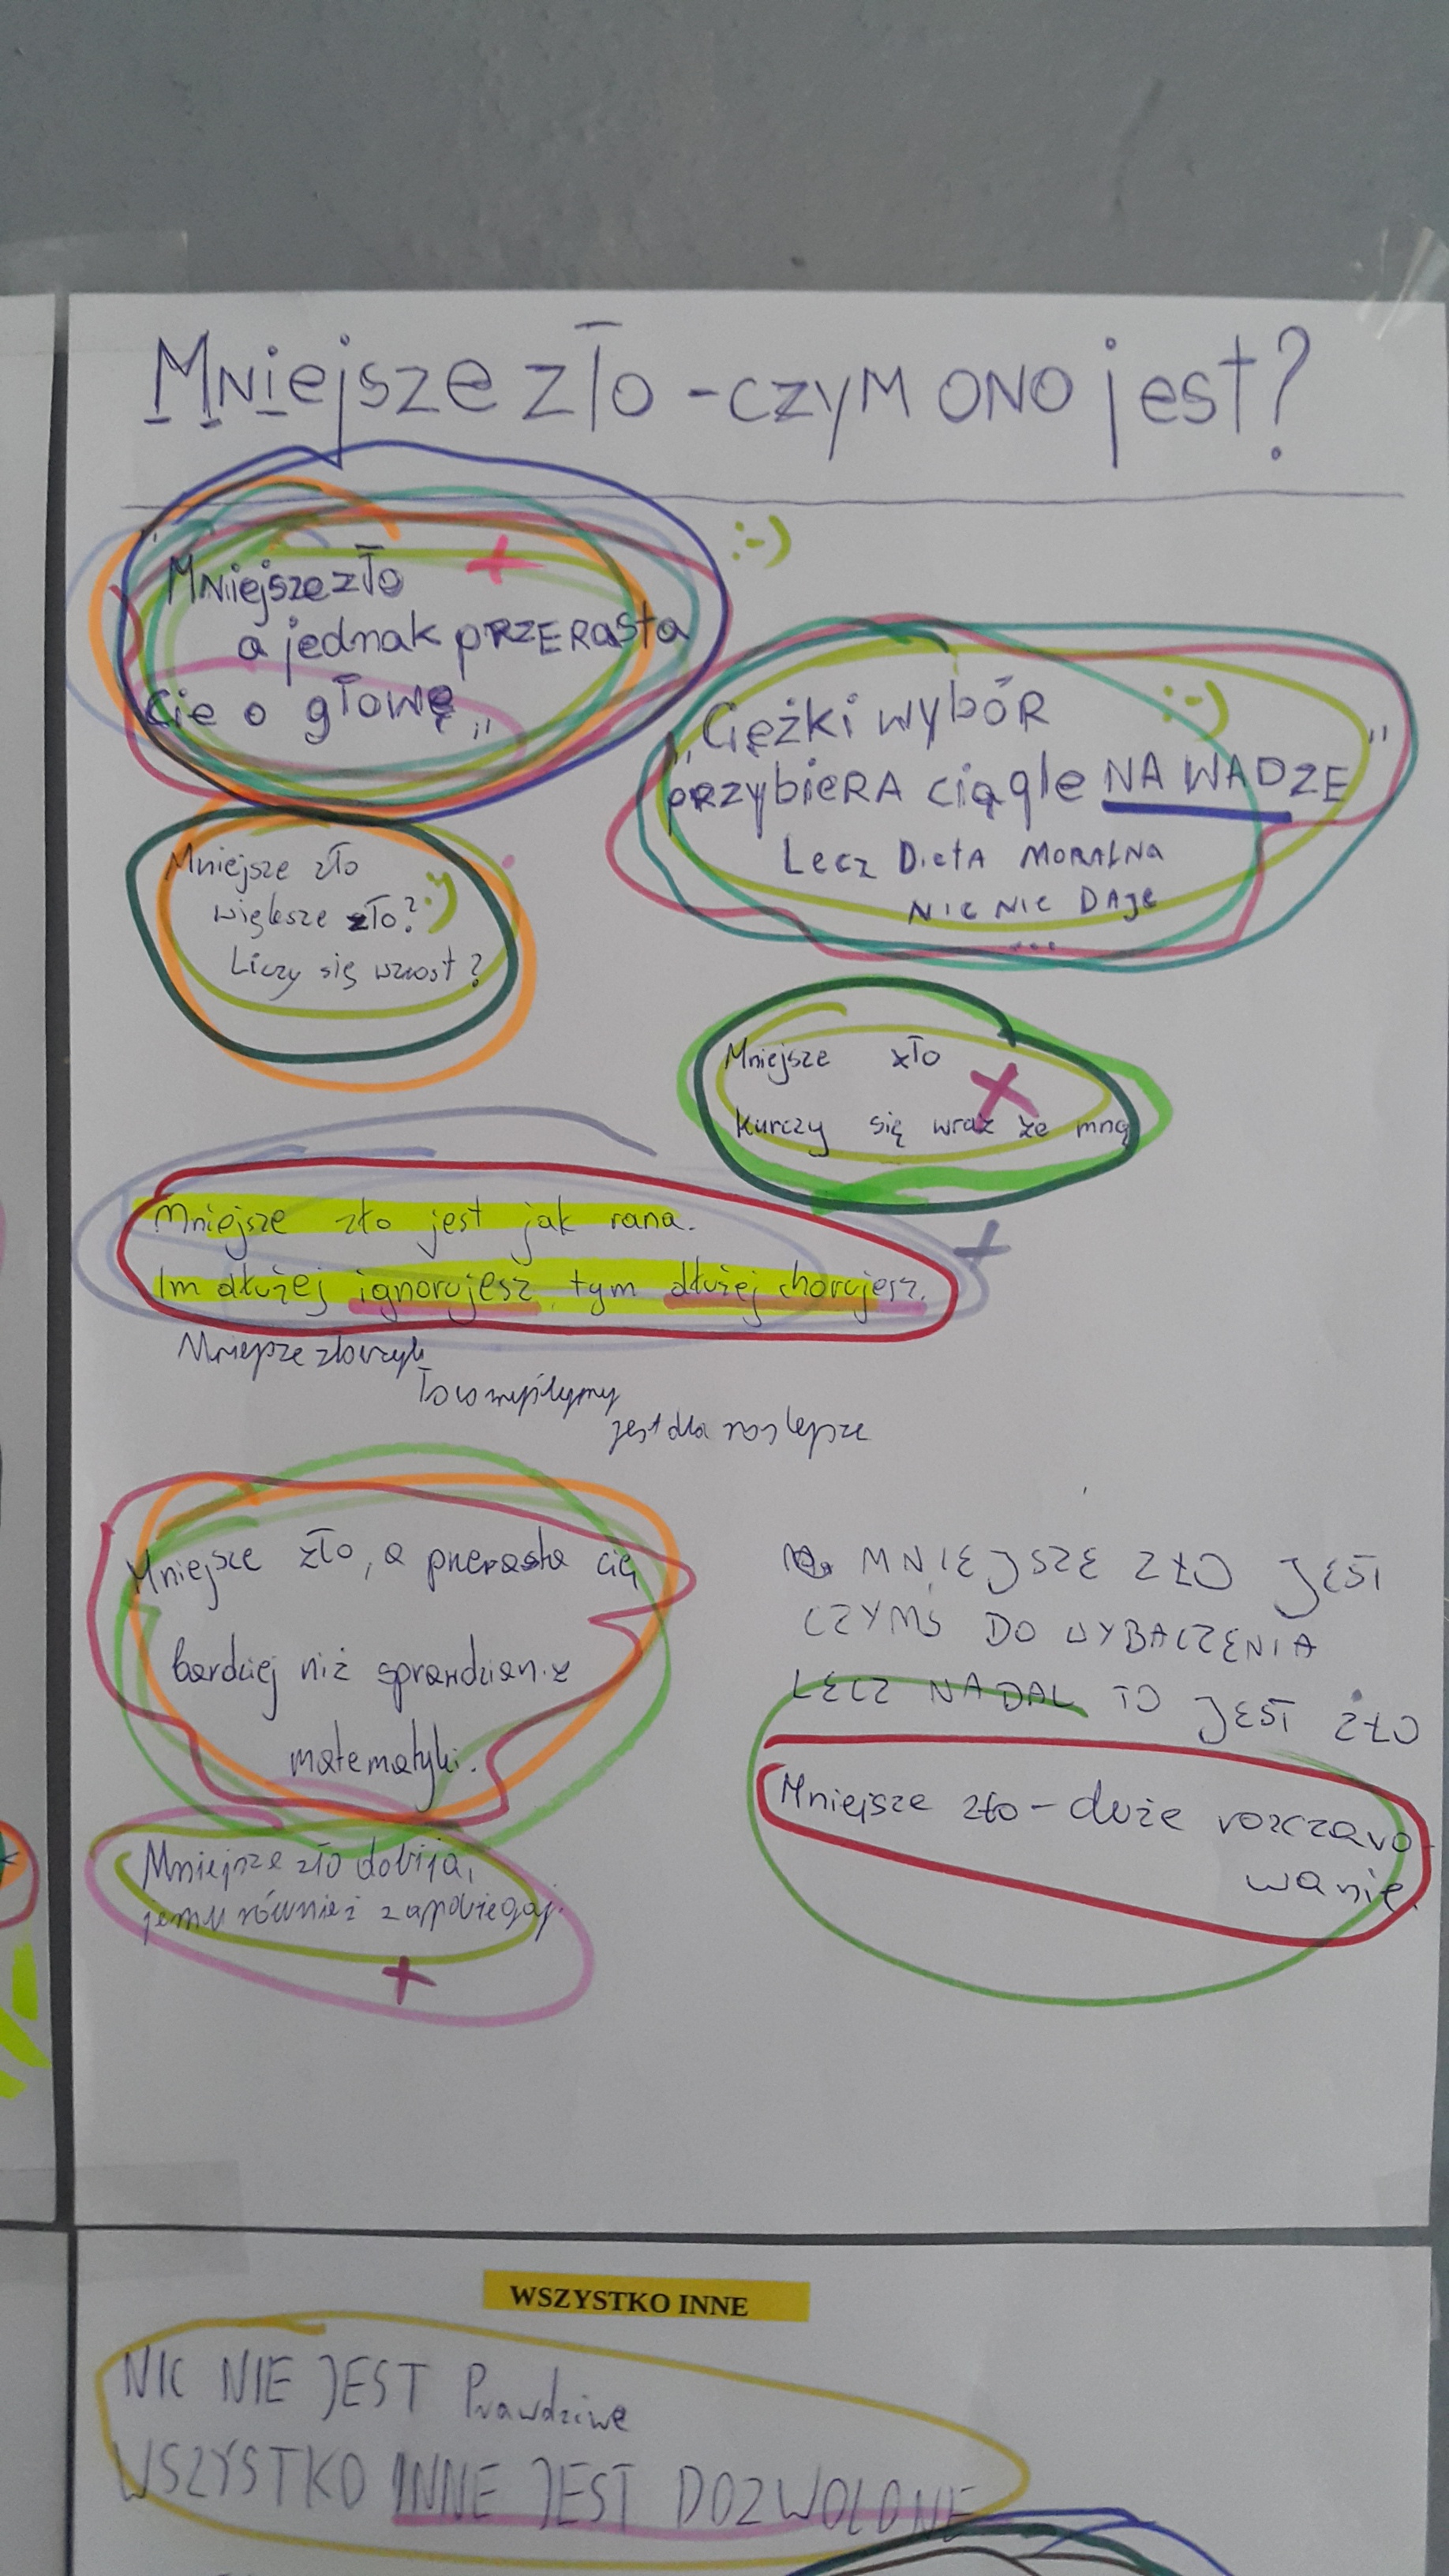 Mniejsze zło - czym ono jest?
"Mniejsze zło
a jednak PRZERasta
Cie o głowę"
:-)
"Ciężki wybóR :-)
pRzybieRA ciągle NA WADZE"
Lecz Dieta MORALNA
NIC NIE DAJE
...
Mniejsze zło
większe zło? :)
Liczy się wzrost?
Mniejsze zło
kurczy się wraz ze mną
Mniejsze zło jest jak rana.
Im dłużej ignorujesz, tym dłużej chorujesz.
Mniejsze zło czyli
To co myślymy
jest dla nas lepsze
Mniejsze zło, a przerasta cię
bardziej niż sprawdzian z
matematyki.
MNIEJSZE ZŁO JEST
CZYMŚ DO WYBACZENIA
LECZ NADAL TO JEST ZŁO
Mniejsze zło - duże rozczaro-
wanie.
Mniejsze zło dobija,
jemu również zapobiegaj.
WSZYSTKO INNE
NIC NIE JEST Prawdziwe
WSZYSTKO INNE JEST DOZWOLONE